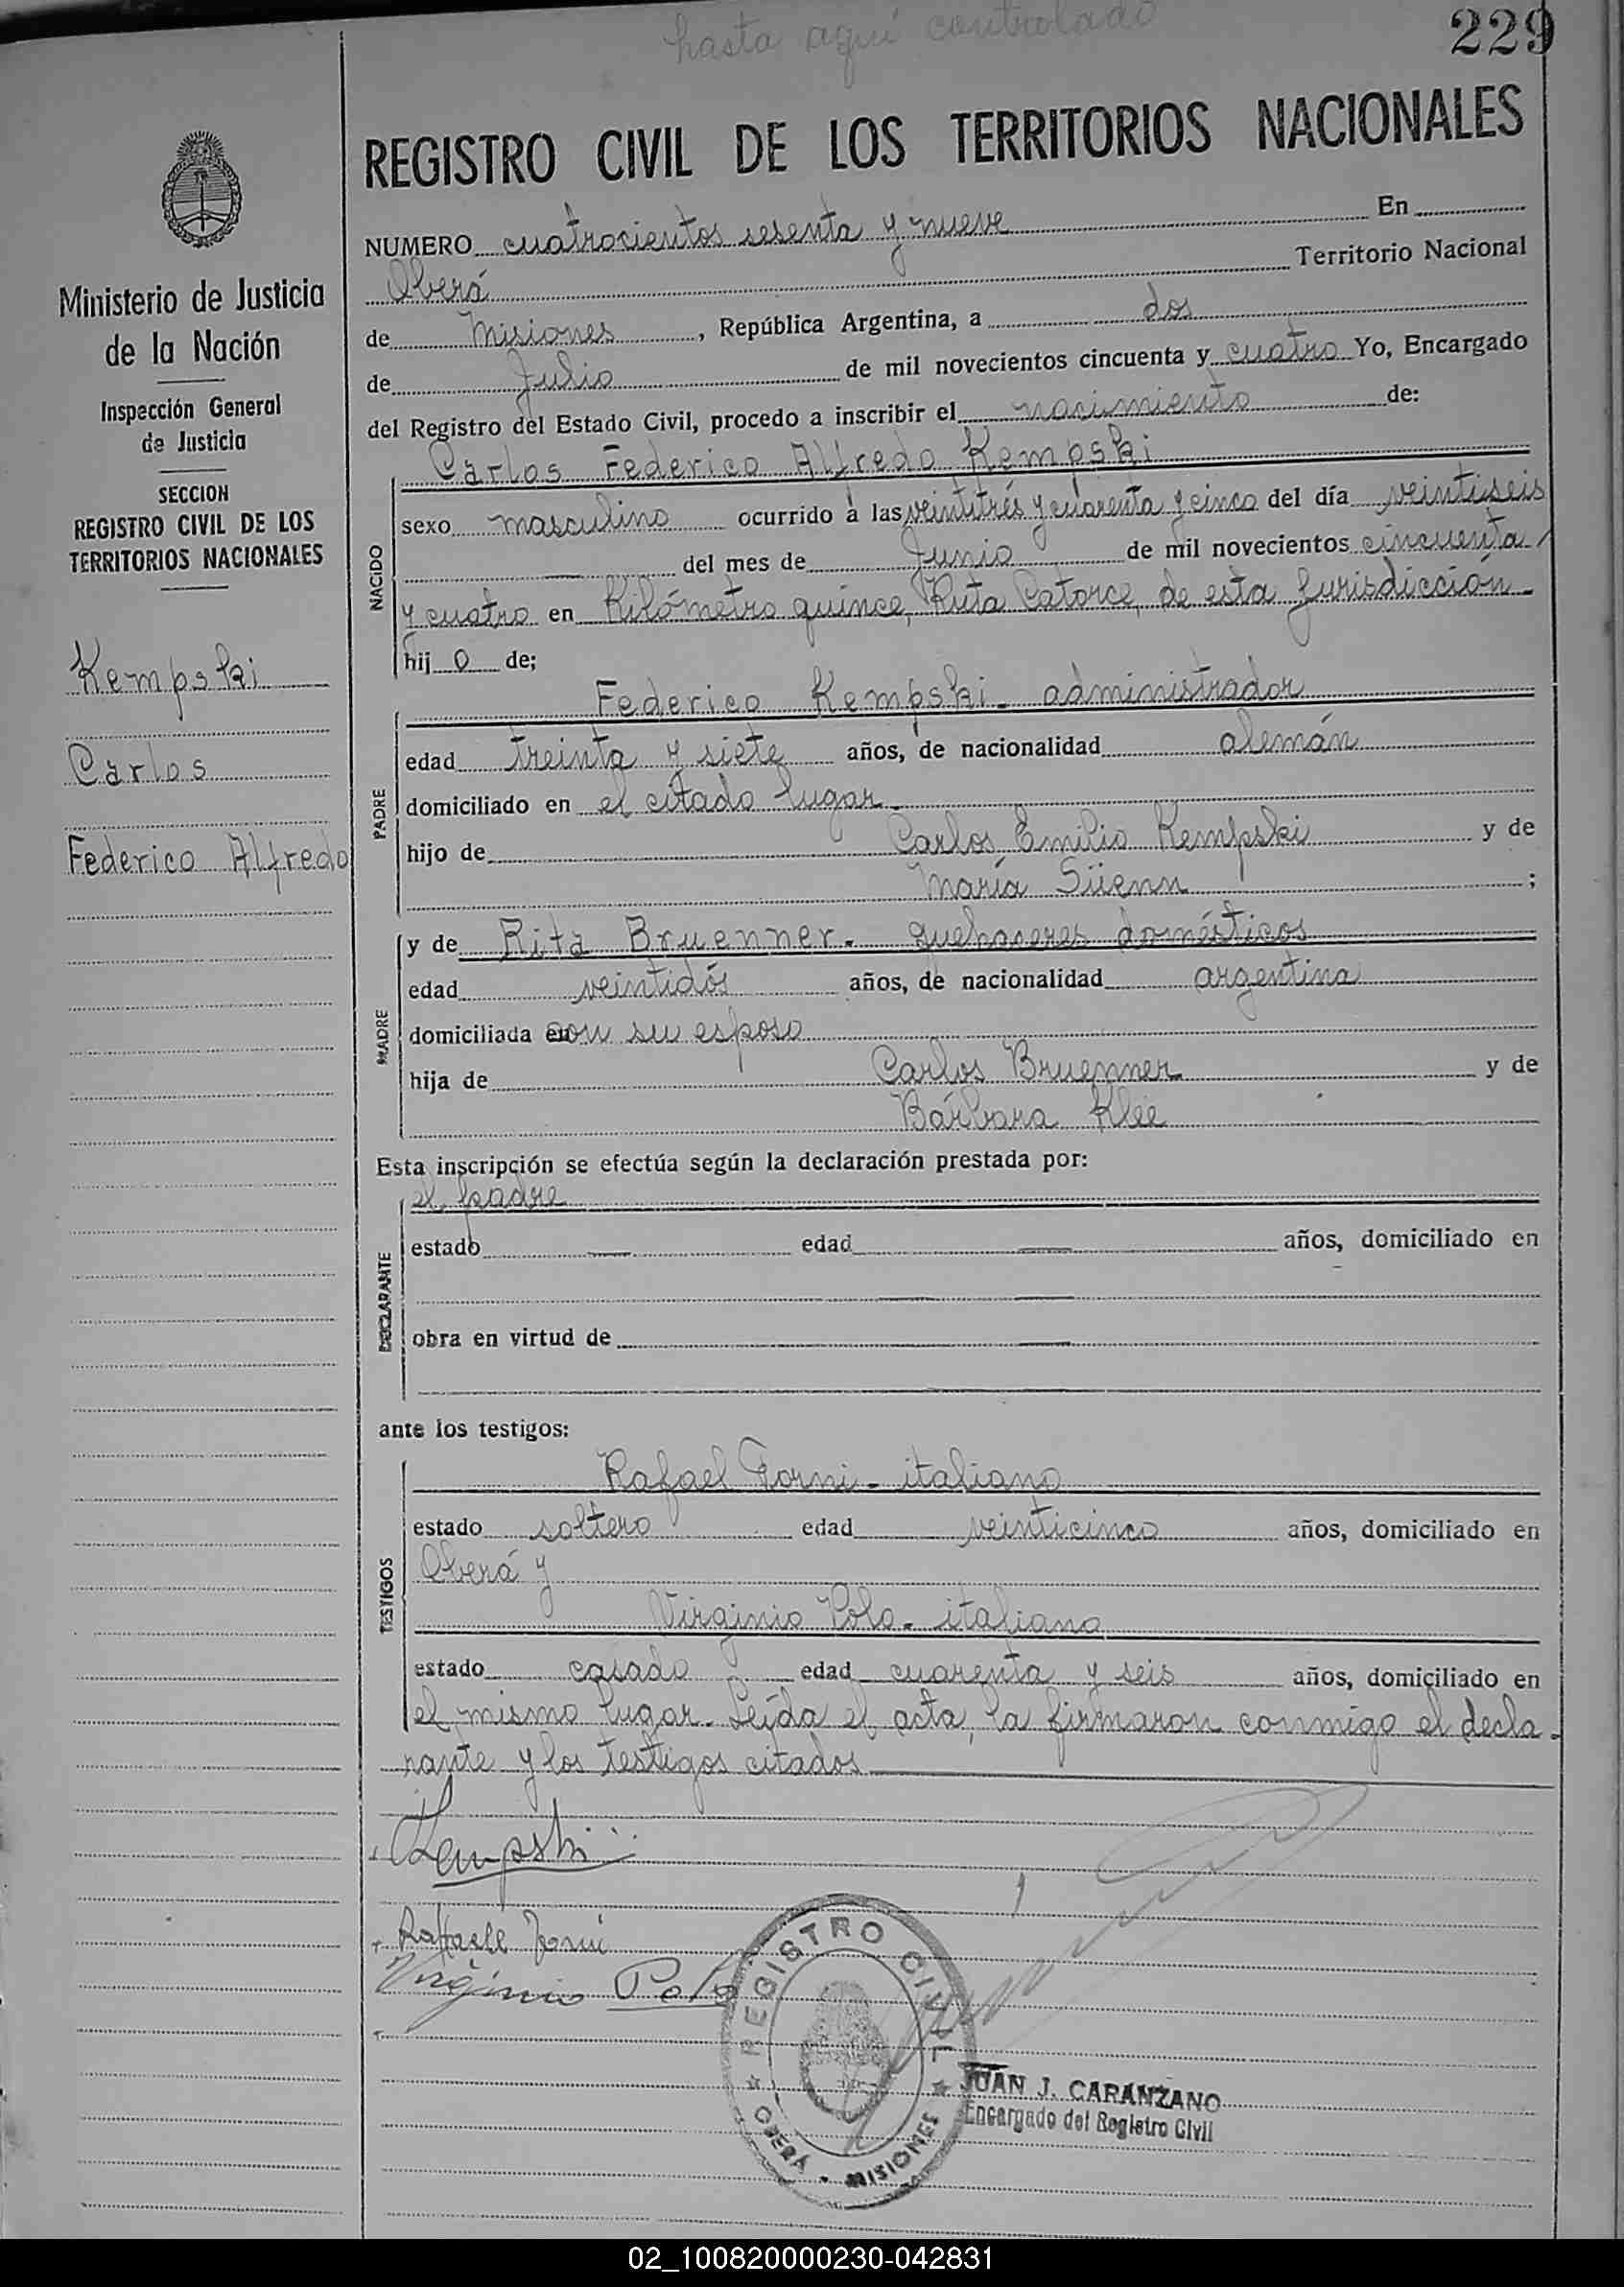 hasta aquí controlado
229
REGISTRO CIVIL DE LOS TERRITORIOS NACIONALES
Ministerio de Justicia
de la Nación
Inspección General
de Justicia
SECCION
REGISTRO CIVIL DE LOS
TERRITORIOS NACIONALES
Kempski
Carlos
Federico Alfredo
NUMERO cuatrocientos sesenta y nueve En
Oberá Territorio Nacional
de Misiones, República Argentina, a dos
de Julio de mil novecientos cincuenta y cuatro Yo, Encargado
del Registro del Estado Civil, procedo a inscribir el nacimiento de:
Carlos Federico Alfredo Kempski
NACIDO
sexo masculino ocurrido a las veintitrés y cuarenta y cinco del día veintiseis
del mes de Junio de mil novecientos cincuenta
y cuatro en Kilómetro quince, Ruta Catorce, de esta jurisdicción
hijo de;
PADRE
Federico Kempski - administrador
edad treinta y siete años, de nacionalidad alemán
domiciliado en el citado lugar.
hijo de Carlos Emilio Kempski y de
María Süenn;
MADRE
y de Rita Bruenner. quehaceres domésticos
edad veintidós años, de nacionalidad argentina
domiciliada en con su esposo
hija de Carlos Bruenner y de
Bárbara Klee
Esta inscripción se efectúa según la declaración prestada por:
DECLARANTE
el padre
estado — edad — años, domiciliado en
obra en virtud de —
ante los testigos:
TESTIGOS
Rafael Forni - italiano
estado soltero edad veinticinco años, domiciliado en
Oberá y
Virginio Polo - italiano
estado casado edad cuarenta y seis años, domiciliado en
el mismo lugar. Leída el acta, la firmaron conmigo el decla-
rante y los testigos citados
Kempski
Raffaele Forni
Virginio Polo
REGISTRO CIVIL
OBERA - MISIONES
JUAN J. CARANZANO
Encargado del Registro Civil
02_100820000230-042831